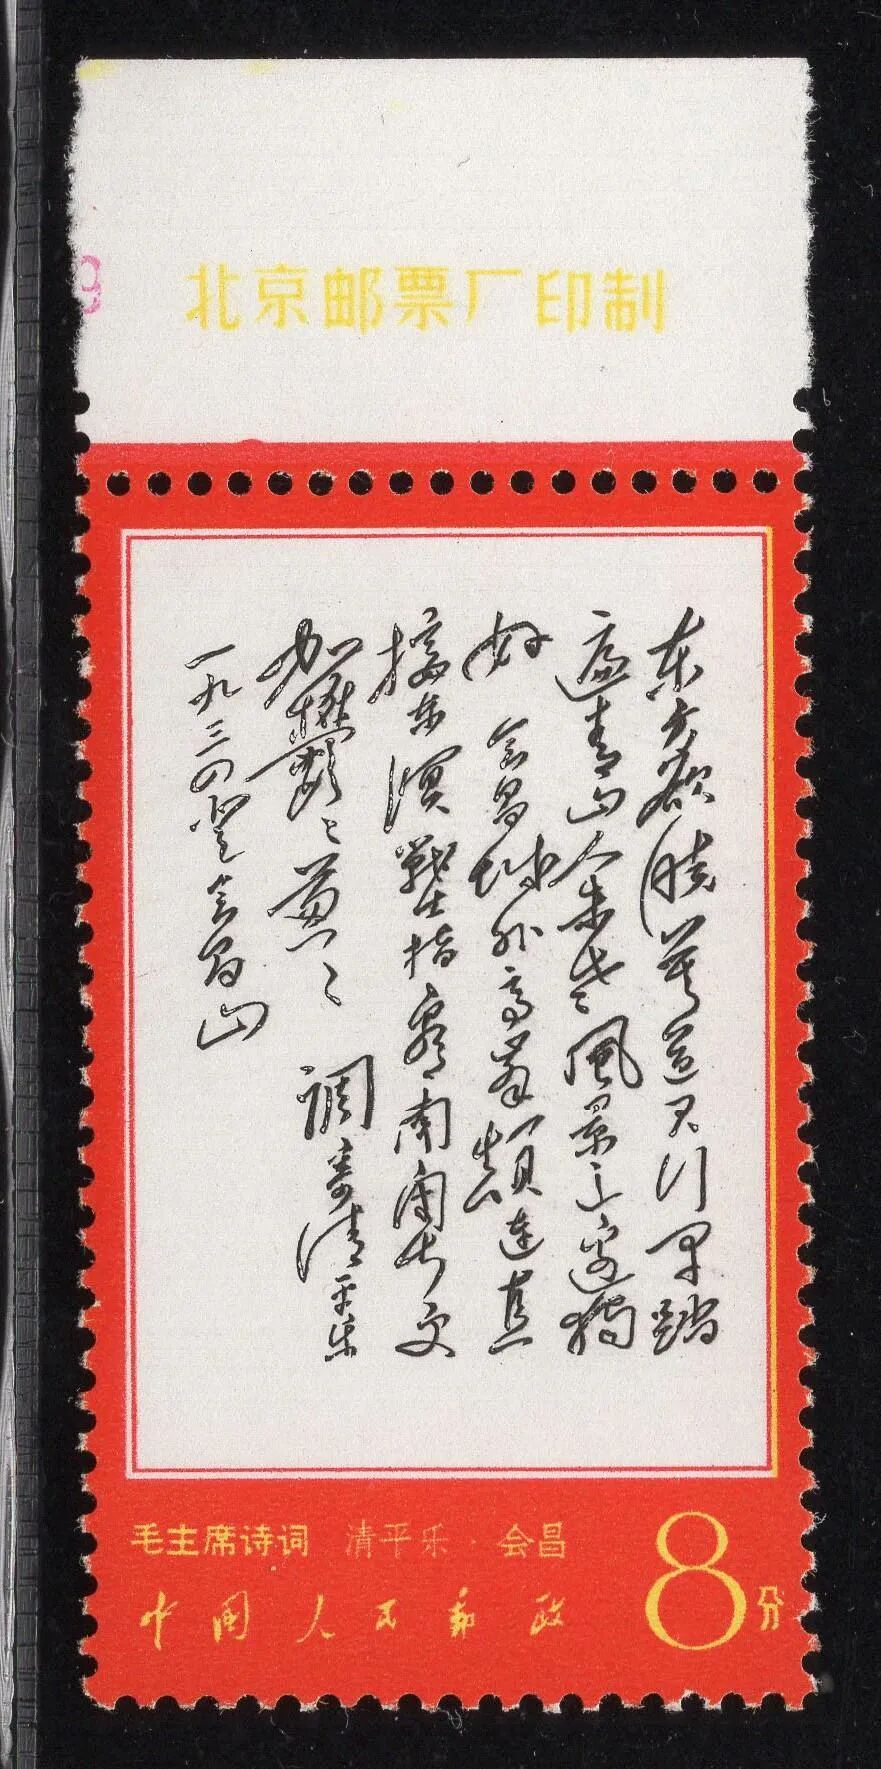 北京邮票厂印制
东方欲晓莫道君行早踏
遍青山人未老風景这邊獨
好 会昌城外高峯顛連直
接东溟戰士指看南粤更
加鬱〻葱〻 調寄清平乐
一九三四登会昌山
毛主席诗词 清平乐 · 会昌
中国人民邮政
8分